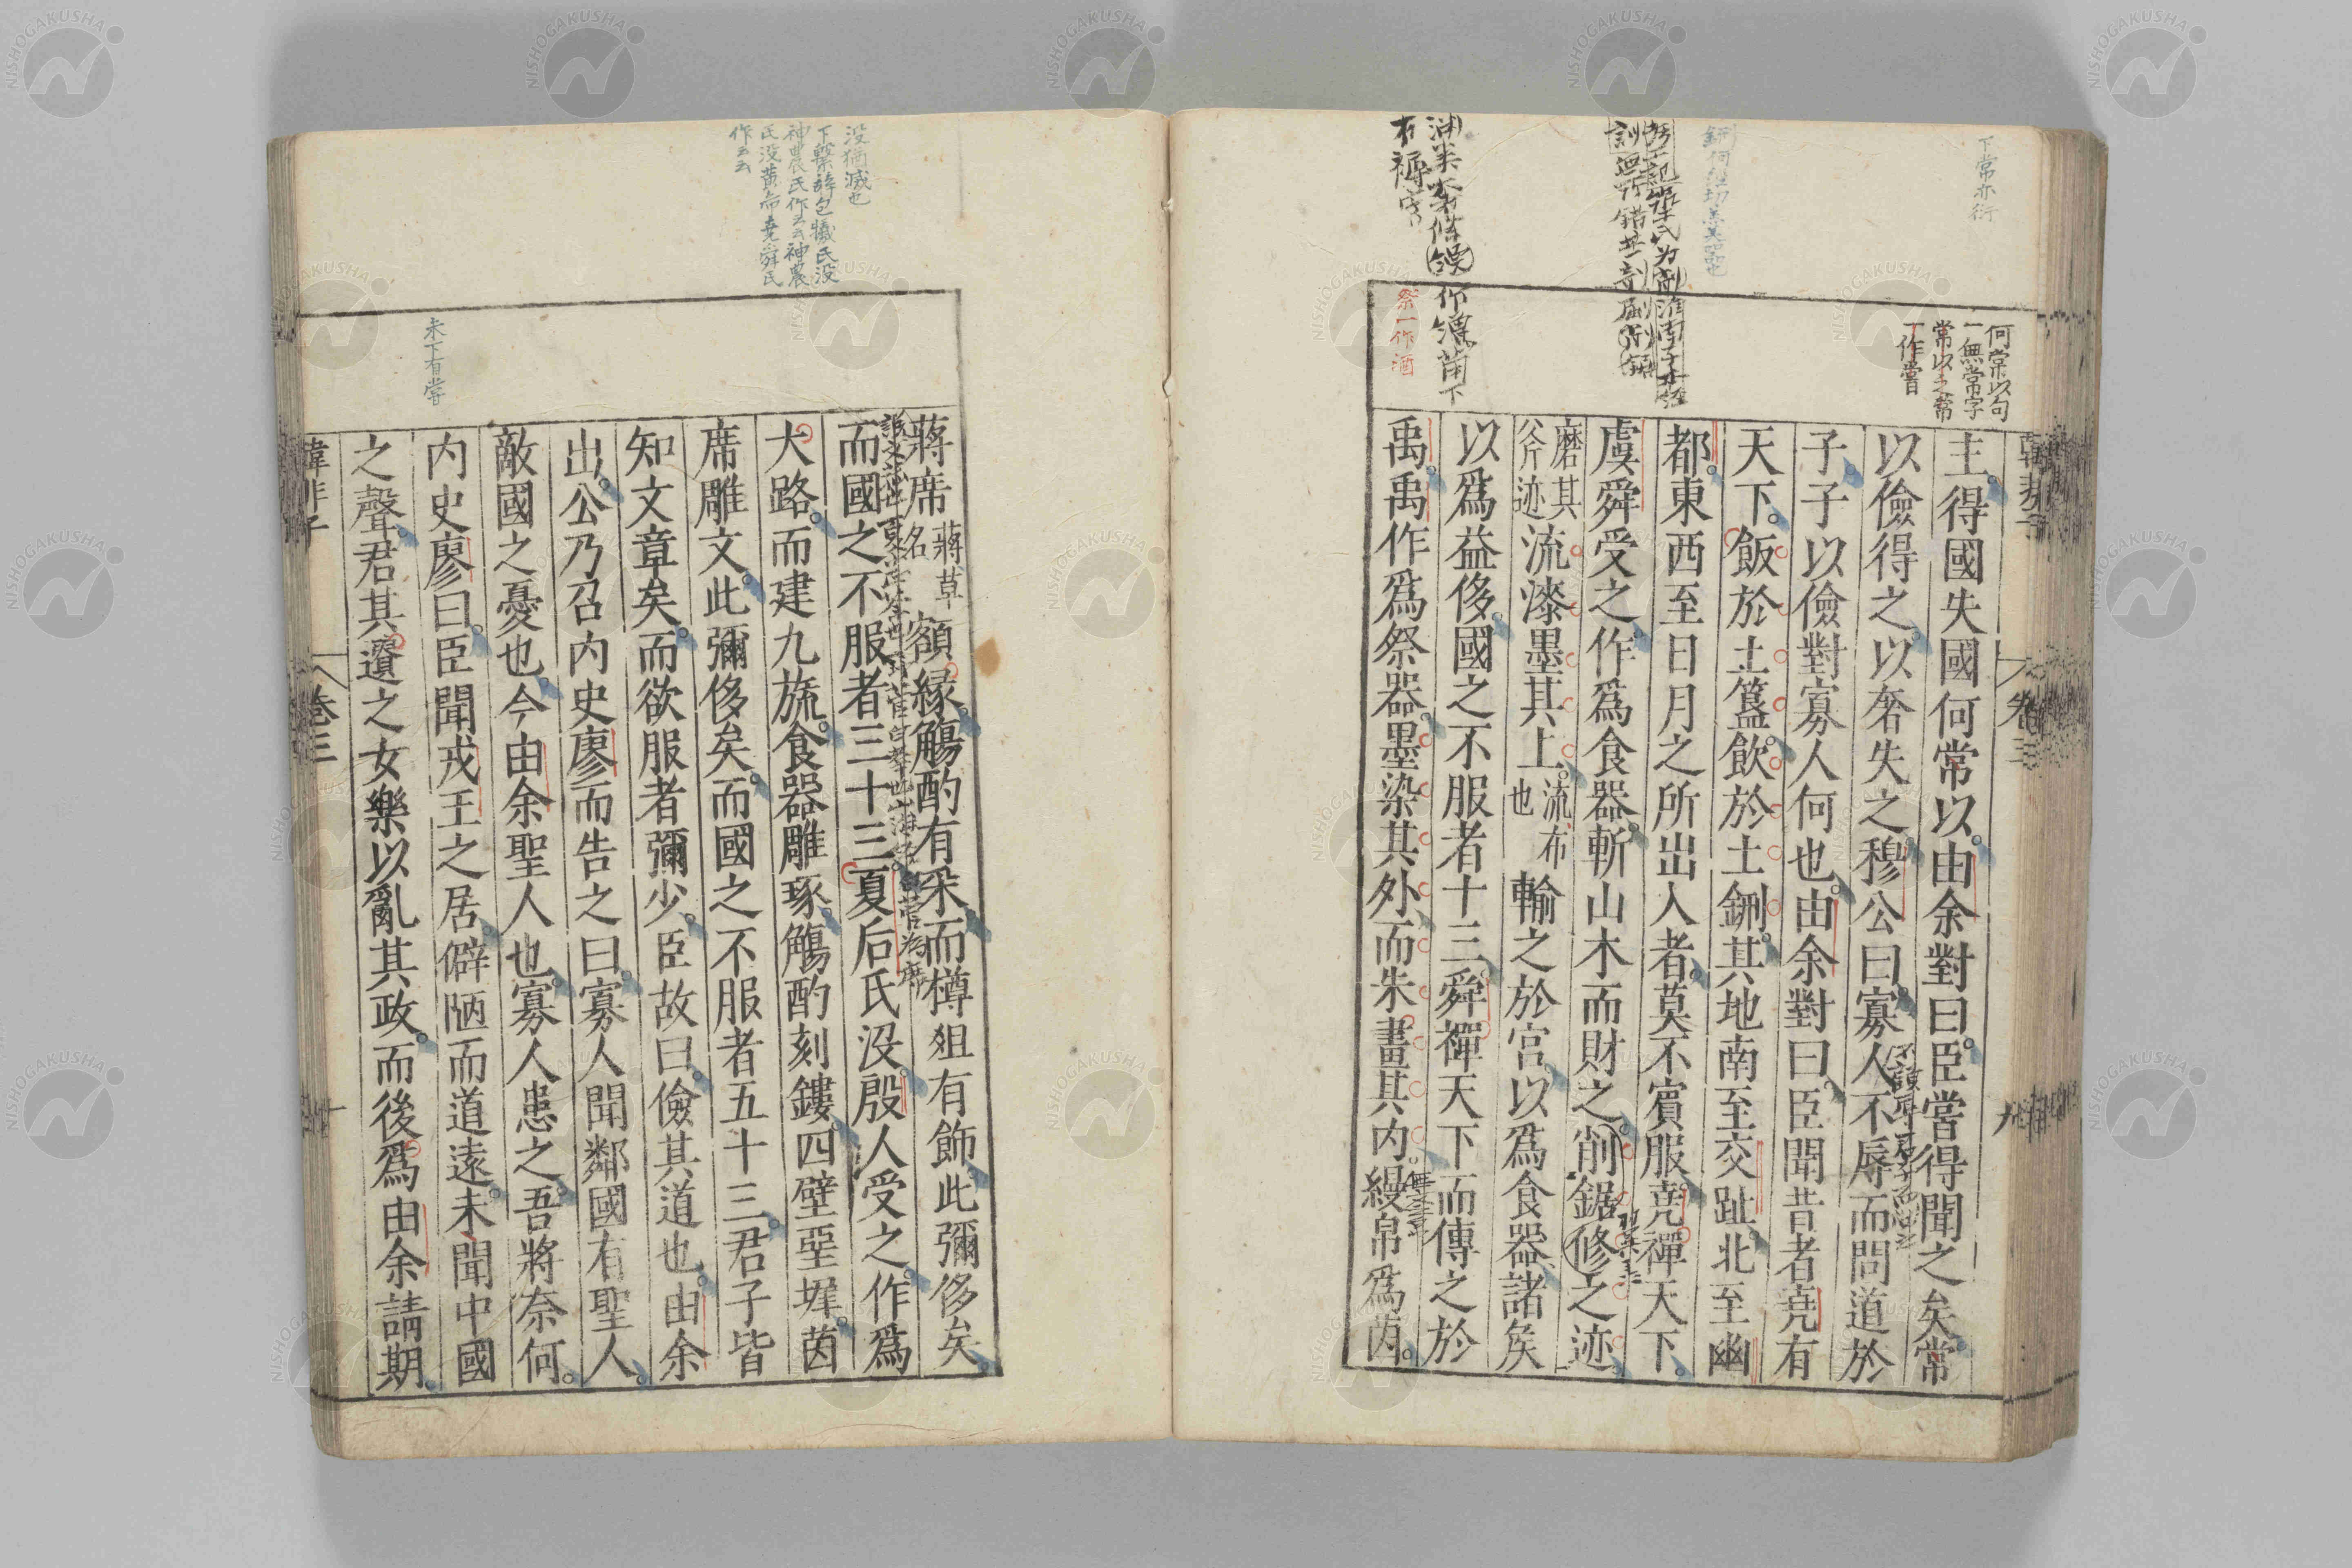 下常亦衍
何常以句
一無常字
常以之常
一作嘗
主得國失國何常以由余對曰臣嘗得聞之矣常
以儉得之以奢失之穆公曰寡人不辱而問道於
子子以儉對寡人何也由余對曰臣聞昔者堯有
天下飯於土簋飲於土鉶其地南至交趾北至幽
都東西至日月之所出入者莫不賓服堯禪天下
虞舜受之作爲食器斬山木而財之削鋸修之迹
磨其
斧迹
流漆墨其上
流布
也
輸之於宮以爲食器諸矦
以爲益侈國之不服者十三舜禪天下而傳之於
禹禹作爲祭器墨染其外而朱畫其內縵帛爲茵
祭一作酒
卷三
蔣席
蔣草
名
額緣觴酌有采而樽俎有飾此彌侈矣
而國之不服者三十三夏后氏没殷人受之作爲
大路而建九旒食器雕琢觴酌刻鏤四壁堊墀茵
席雕文此彌侈矣而國之不服者五十三君子皆
知文章矣而欲服者彌少臣故曰儉其道也由余
出公乃召内史廖而告之曰寡人聞鄰國有聖人
敵國之憂也今由余聖人也寡人患之吾將奈何
内史廖曰臣聞戎王之居僻陋而道遠未聞中國
之聲君其遺之女樂以亂其政而後爲由余請期
没猶滅也
下繫辞包犧氏没
神農氏作云云神農
氏没黄帝堯舜氏
作云云
未下有嘗
韓非子
卷三
NISHOGAKUSHA